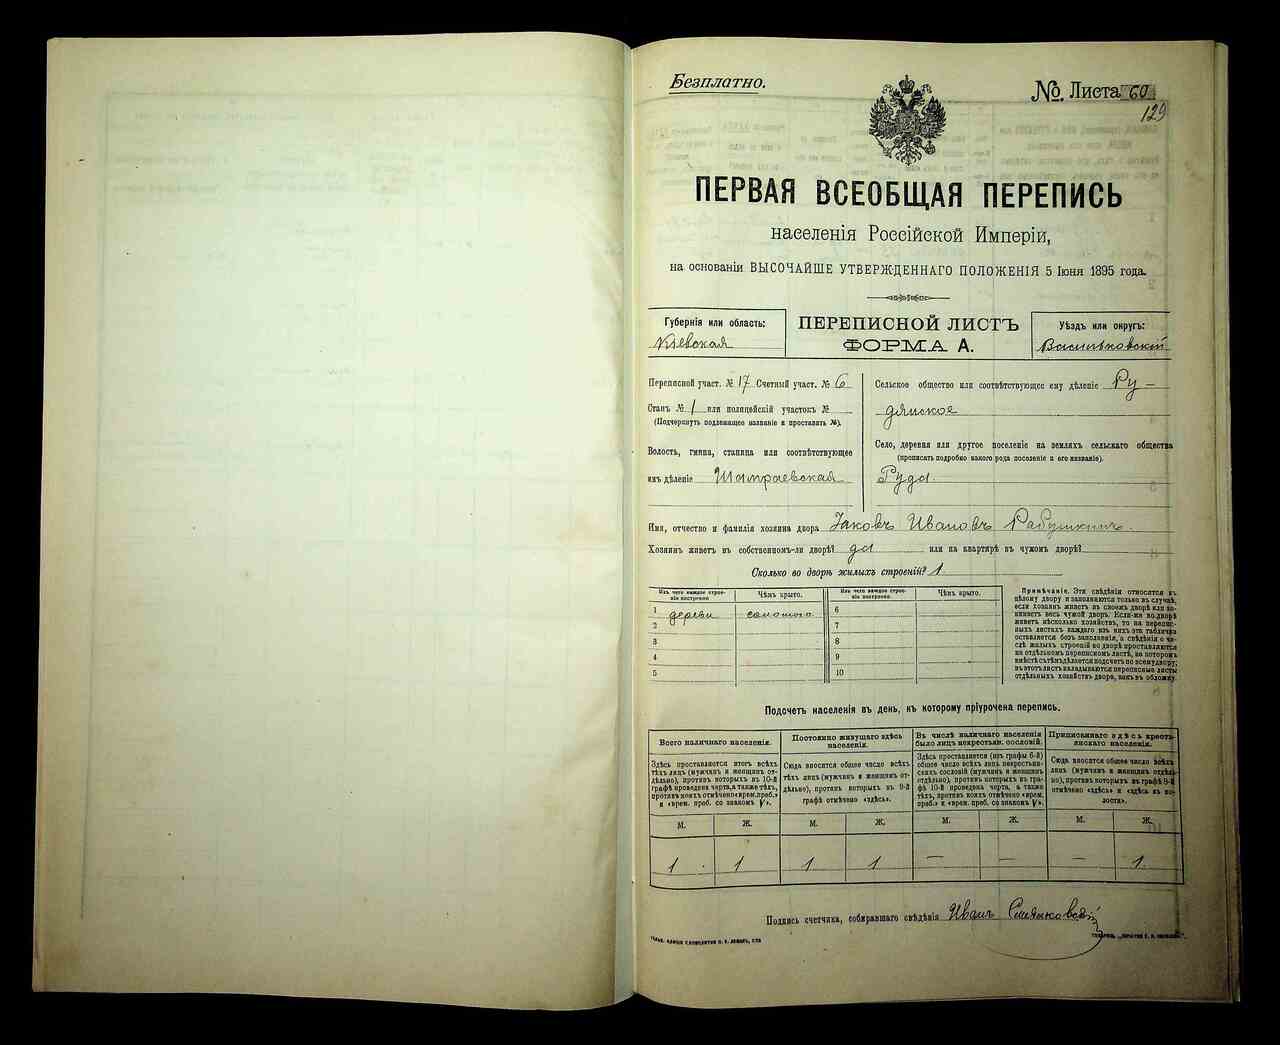 Безплатно.
№ Листа 60
129
ПЕРВАЯ ВСЕОБЩАЯ ПЕРЕПИСЬ
населенія Россійской Имперіи,
на основаніи ВЫСОЧАЙШЕ УТВЕРЖДЕННАГО ПОЛОЖЕНІЯ 5 Іюня 1895 года.
Губернія или область:
Кіевская
ПЕРЕПИСНОЙ ЛИСТЪ
ФОРМА А.
Уѣздъ или округъ:
Васильковскій
Переписной участ. № 17 Счетный участ. № 6
Станъ № 1 или полицейскій участокъ №
(Подчеркнуть подлежащее названіе и проставить №).
Волость, гмина, станица или соотвѣтствующее
имъ дѣленіе Шамраевская
Сельское общество или соотвѣтствующее ему дѣленіе Ру-
дянское
Село, деревня или другое поселеніе на земляхъ сельскаго общества
(прописать подробно какого рода поселеніе и его названіе).
Руда.
Имя, отчество и фамилія хозяина двора Іаковъ Ивановъ
Хозяинъ живетъ въ собственномъ-ли дворѣ? да или на квартирѣ въ чужомъ дворѣ?
Сколько во дворѣ жилыхъ строеній? 1
Изъ чего каждое строе-
ніе построено.
Чѣмъ крыто.
Изъ чего каждое строе-
ніе построено.
Чѣмъ крыто.
1 дерева соломою 6
2 7
3 8
4 9
5 10
Примѣчаніе. Эти свѣдѣнія относятся къ
цѣлому двору и заполняются только въ случаѣ,
если хозяинъ живетъ въ своемъ дворѣ или за-
нимаетъ весь чужой дворъ. Если-же во дворѣ
живетъ нѣсколько хозяйствъ, то на перепис-
ныхъ листахъ каждаго изъ нихъ эта табличка
оставляется безъ заполненія, а свѣдѣнія о чи-
слѣ жилыхъ строеній во дворѣ проставляются
на отдѣльномъ переписномъ листѣ, на которомъ
вмѣстѣ съ тѣмъ дѣлается подсчетъ по всему двору;
въ этотъ листъ вкладываются переписные листы
отдѣльныхъ хозяйствъ двора, какъ въ обложку.
Подсчетъ населенія въ день, къ которому пріурочена перепись.
Всего наличнаго населенія.
Здѣсь проставляются итогъ всѣхъ
тѣхъ лицъ (мужчинъ и женщинъ от-
дѣльно), противъ которыхъ въ 10-й
графѣ проведена черта, а также тѣхъ,
противъ коихъ отмѣчено «врем. преб.»
и «врем. преб. со знакомъ V».
Постоянно живущаго здѣсь
населенія.
Сюда вносится общее число всѣхъ
тѣхъ лицъ (мужчинъ и женщинъ от-
дѣльно), противъ которыхъ въ 9-й
графѣ отмѣчено «здѣсь».
Въ числѣ наличнаго населенія
было лицъ некрестьян. сословій.
Здѣсь проставляется (изъ графы 6-й)
общее число всѣхъ лицъ некрестьян-
скихъ сословій (мужчинъ и женщинъ
отдѣльно), противъ которыхъ въ гра-
фѣ 10-й проведена черта, а также
тѣхъ, противъ коихъ отмѣчено «врем.
преб.» и «врем. преб. со знакомъ V».
Приписаннаго здѣсь кресть-
янскаго населенія.
Сюда вносится общее число всѣхъ
лицъ (мужчинъ и женщинъ отдѣль-
но), противъ которыхъ въ графѣ 8-й
отмѣчено «здѣсь» и «здѣсь въ во-
лости».
М. Ж. М. Ж. М. Ж. М. Ж.
1 1 1 1 — — — 1
Подпись счетчика, собиравшаго свѣдѣнія Иванъ